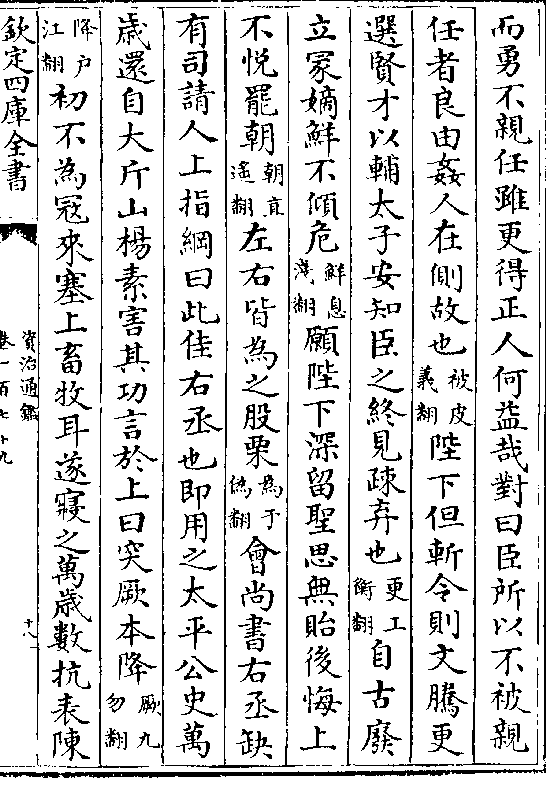 而勇不親任雖更得正人何益哉對曰臣所以不被親
任者良由姦人在側故也被皮義翻陛下但斬令則文騰更
選賢才以輔太子安知臣之終見疎弃也更工衡翻自古廢
立冢嫡鮮不傾危鮮息淺翻願陛下深留聖思無貽後悔上
不悦罷朝朝直遥翻左右皆為之股栗為于偽翻會尚書右丞缺
有司請人上指綱曰此佳右丞也即用之太平公史萬
歳還自大斤山楊素害其功言於上曰突厥本降厥九勿翻
降户江翻初不為冦來塞上畜牧耳遂寢之萬歳數抗表陳
欽定四庫全書
資治通鑑
卷一百七十九
十八